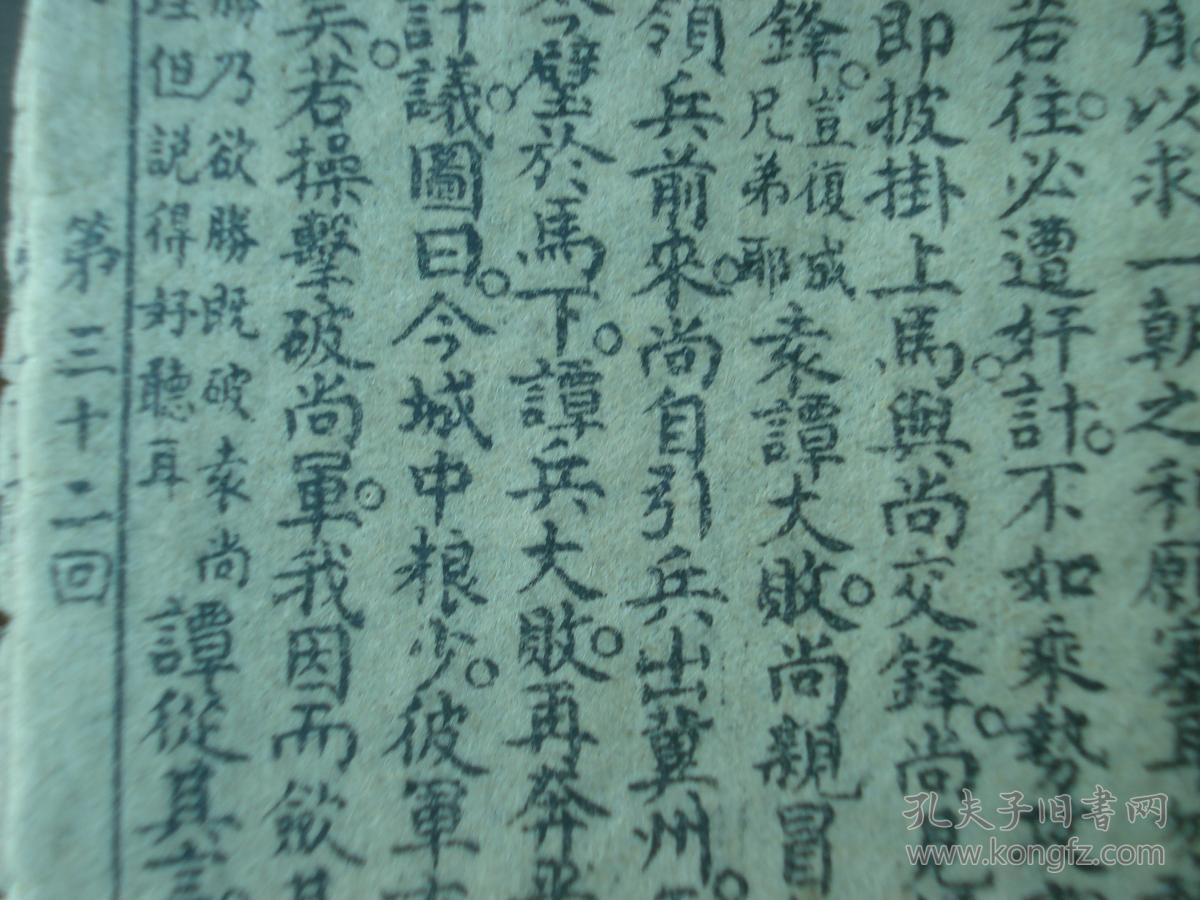 以求一朝之利願
若往必遭奸計不如乘勢
即披掛上馬與尚交鋒尚見
鋒豈復成兄弟耶袁譚大敗尚親冒
領兵前來尚自引兵出冀州
璧於馬下譚兵大敗再奔平
計議圖曰今城中粮少彼軍
兵若操擊破尚軍我因而斂其
勝乃欲勝既破袁尚
但説得好聽耳
譚從其言
第三十二回
孔夫子旧书网
www.kongfz.com